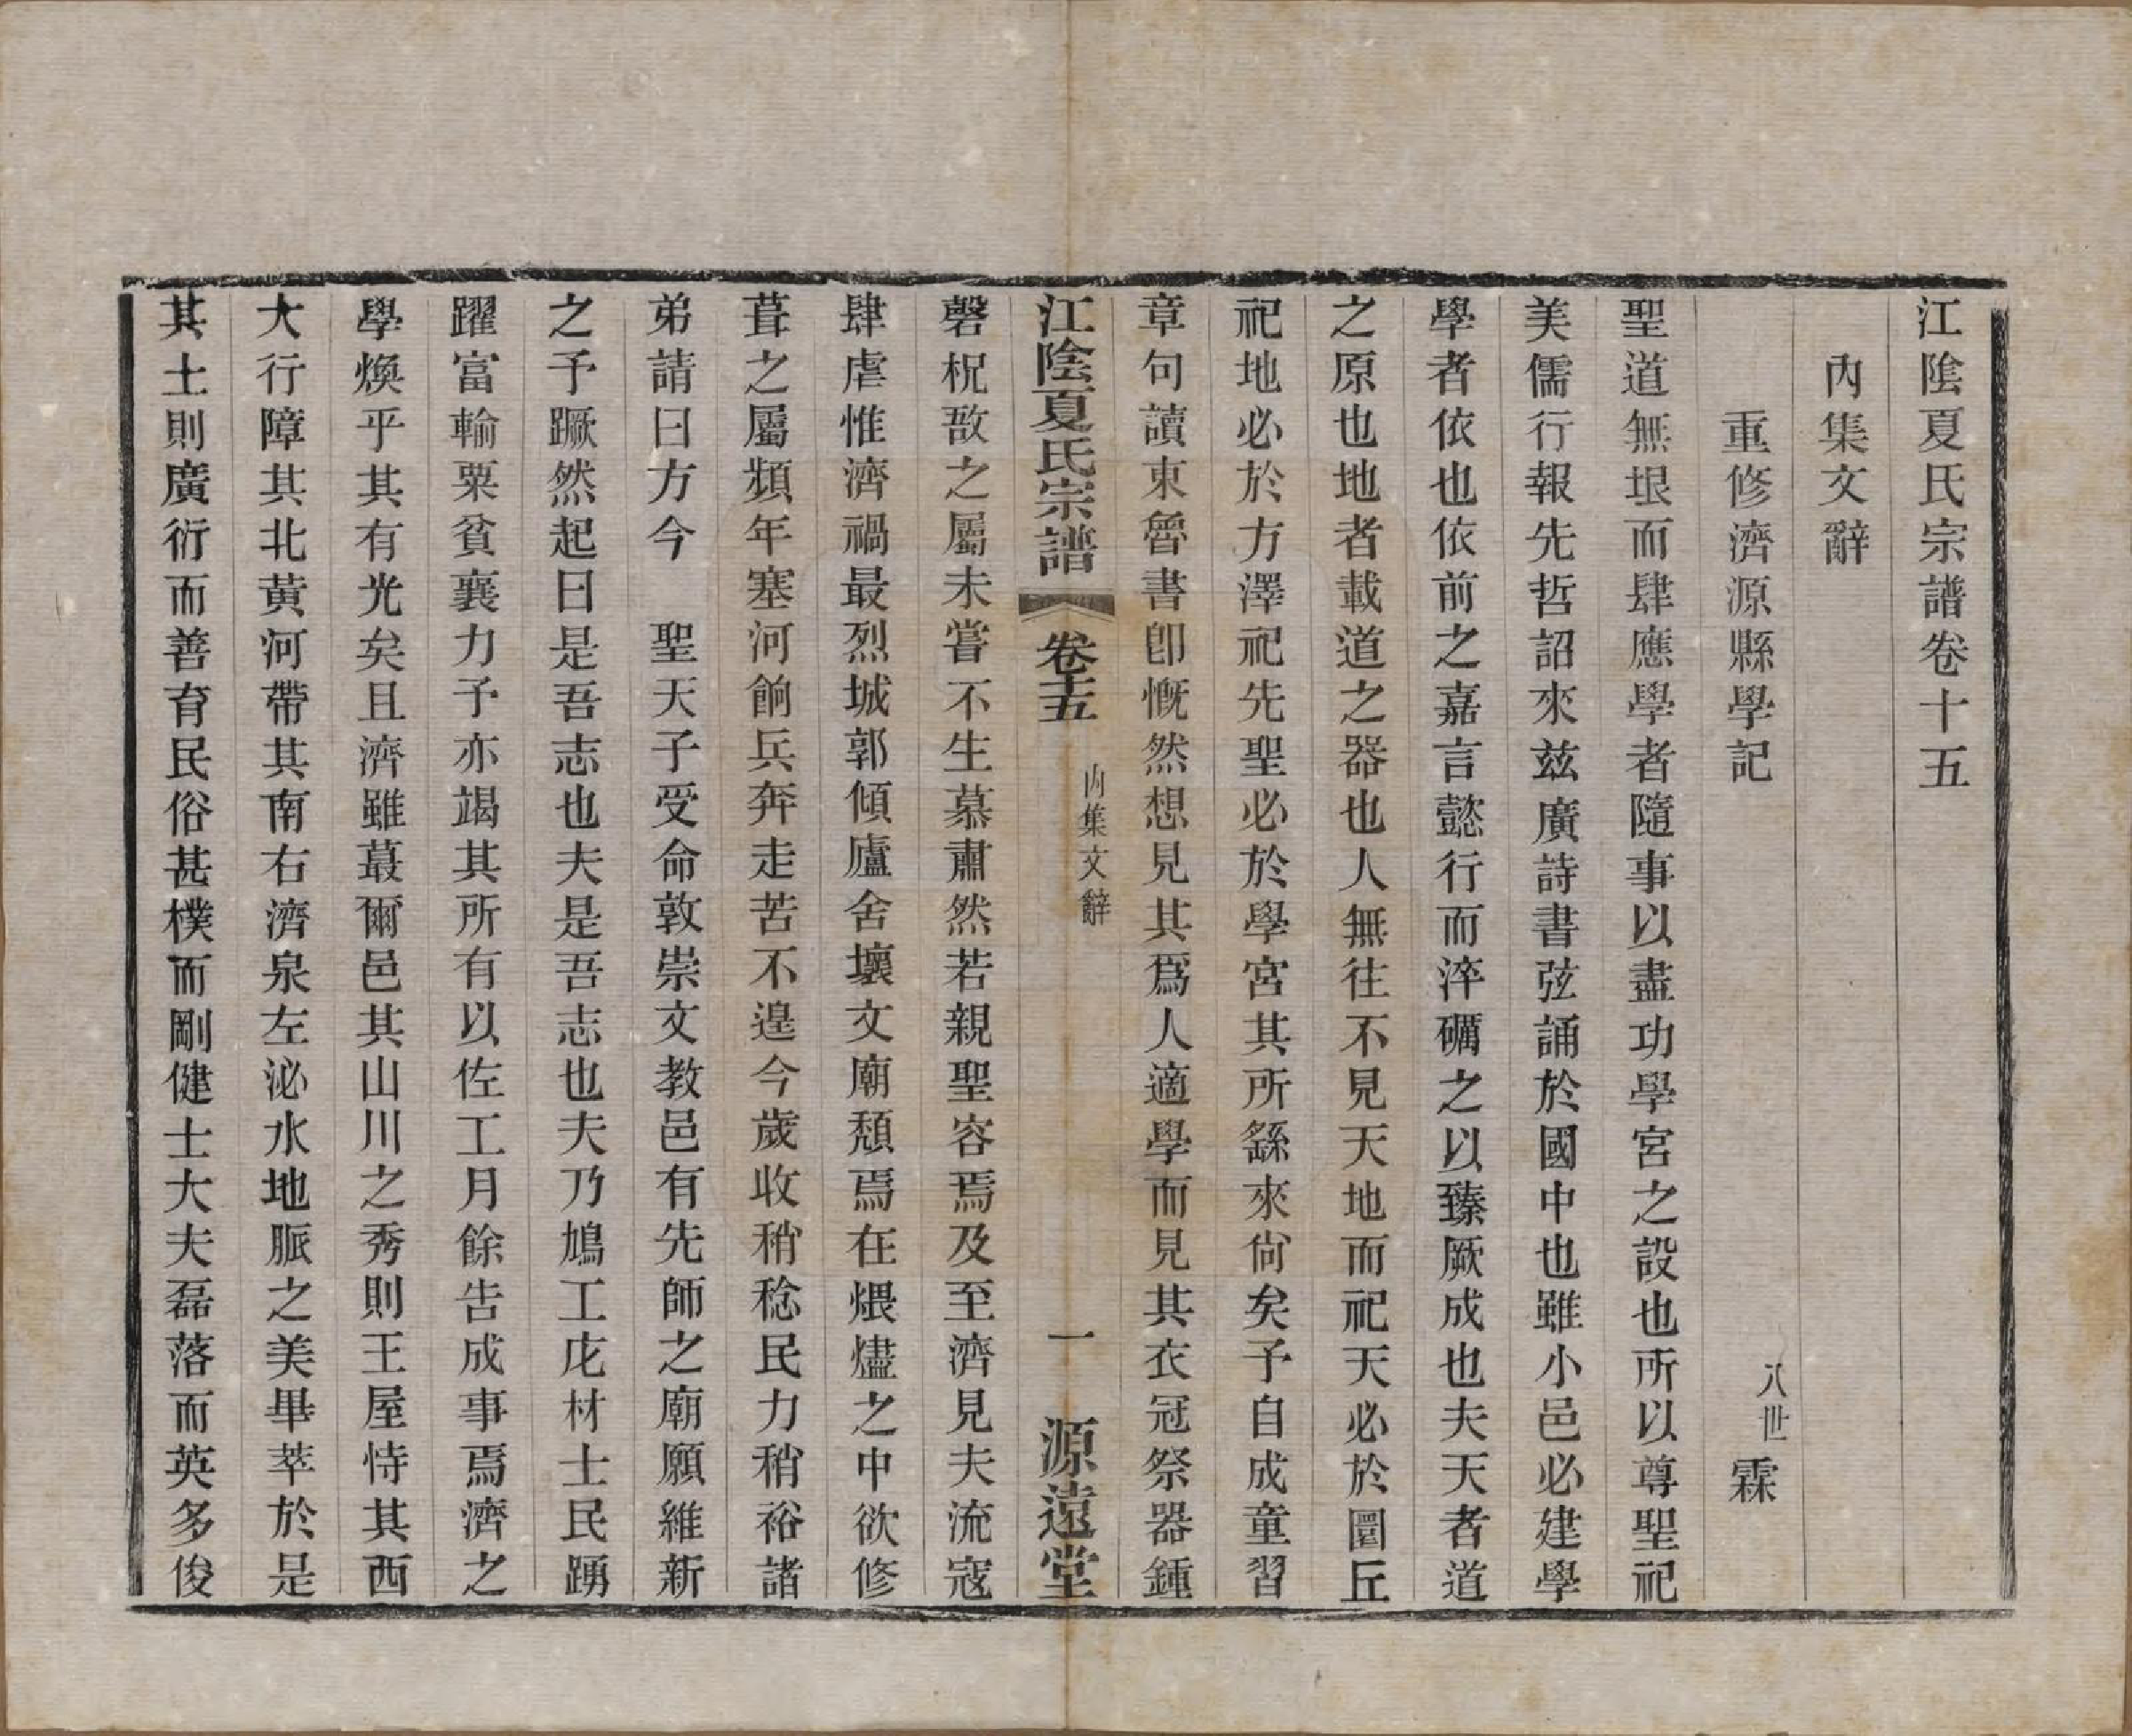 江陰夏氏宗譜卷十五
內集文辭
重修濟源縣學記
八世 霖
聖道無垠而肆應學者隨事以盡功學宮之設也所以尊聖祀
美儒行報先哲詔來玆廣詩書弦誦於國中也雖小邑必建學
學者依也依前之嘉言懿行而淬礪之以臻厥成也夫天者道
之原也地者載道之器也人無往不見天地而祀天必於圜丘
祀地必於方澤祀先聖必於學宮其所繇來尙矣予自成童習
章句讀東魯書卽慨然想見其爲人適學而見其衣冠祭器鍾
江陰夏氏宗譜 卷十五 內集文辭 一 源遠堂
磬柷敔之屬未嘗不生慕肅然若親聖容焉及至濟見夫流寇
肆虐惟濟禍最烈城郭傾廬舍壞文廟頽焉在煨燼之中欲修
葺之屬頻年塞河餉兵奔走苦不遑今歲收稍稔民力稍裕諸
弟請曰方今 聖天子受命敦崇文教邑有先師之廟願維新
之予蹶然起曰是吾志也夫是吾志也夫乃鳩工庀材士民踴
躍富輸粟貧襄力予亦竭其所有以佐工月餘告成事焉濟之
學煥乎其有光矣且濟雖蕞爾邑其山川之秀則王屋恃其西
大行障其北黃河帶其南右濟泉左泌水地脈之美畢萃於是
其土則廣衍而善育民俗甚樸而剛健士大夫磊落而英多俊